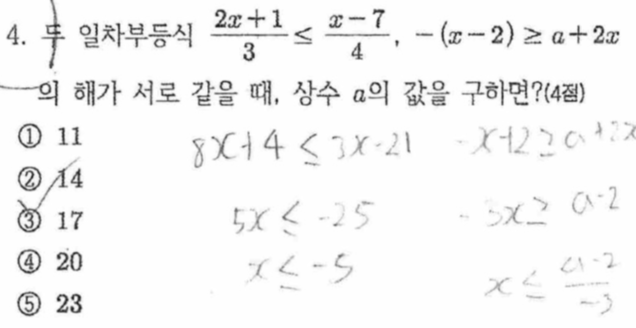 4. 두 일차부등식 (2x+1)/3 ≤ (x-7)/4, -(x-2) ≥ a+2x
의 해가 서로 같을 때, 상수 a의 값을 구하면?(4점)
① 11
② 14
③ 17
④ 20
⑤ 23
8x+4 ≤ 3x-21
5x ≤ -25
x ≤ -5
-x+2 ≥ a+2x
-3x ≥ a-2
x ≤ (a-2)/-3